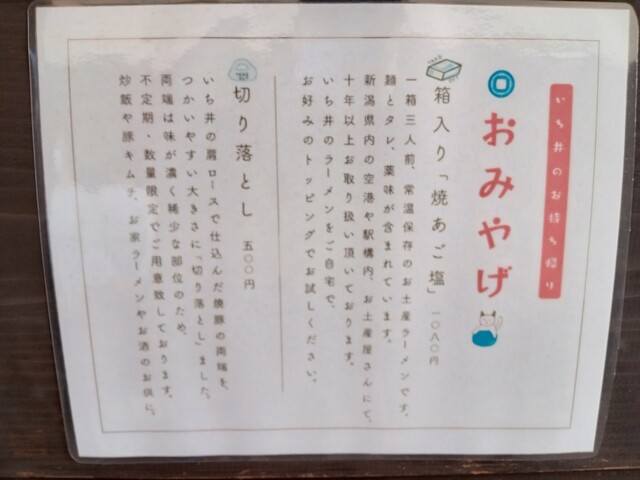 いち井のお持ち帰り
おみやげ
箱入り「焼あご塩」 一〇八〇円
一箱三人前、常温保存のお土産ラーメンです。
麺とタレ、薬味が含まれています。
新潟県内の空港や駅構内、お土産屋さんにて、
十年以上お取り扱い頂いております。
いち井のラーメンをご自宅で、
お好みのトッピングでお試しください。
切り落とし 五〇〇円
いち井の肩ロースで仕込んだ焼豚の両端を、
つかいやすい大きさに「切り落とし」ました。
両端は味が濃く稀少な部位のため、
不定期・数量限定でご用意致しております。
炒飯や豚キムチ、お家ラーメンやお酒のお供に。